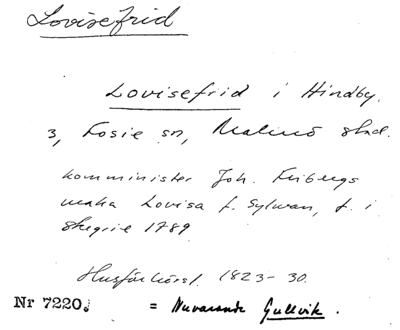 Lovisefrid
Lovisefrid i Hindby
3, Fosie sn, Malmö stad.
komminister Joh. Fribergs
maka Lovisa f. Sylwan, f. i
Skegrie 1789
Husförhörsl. 1823-30.
Nr 7220. = Nuvarande Gullvik.